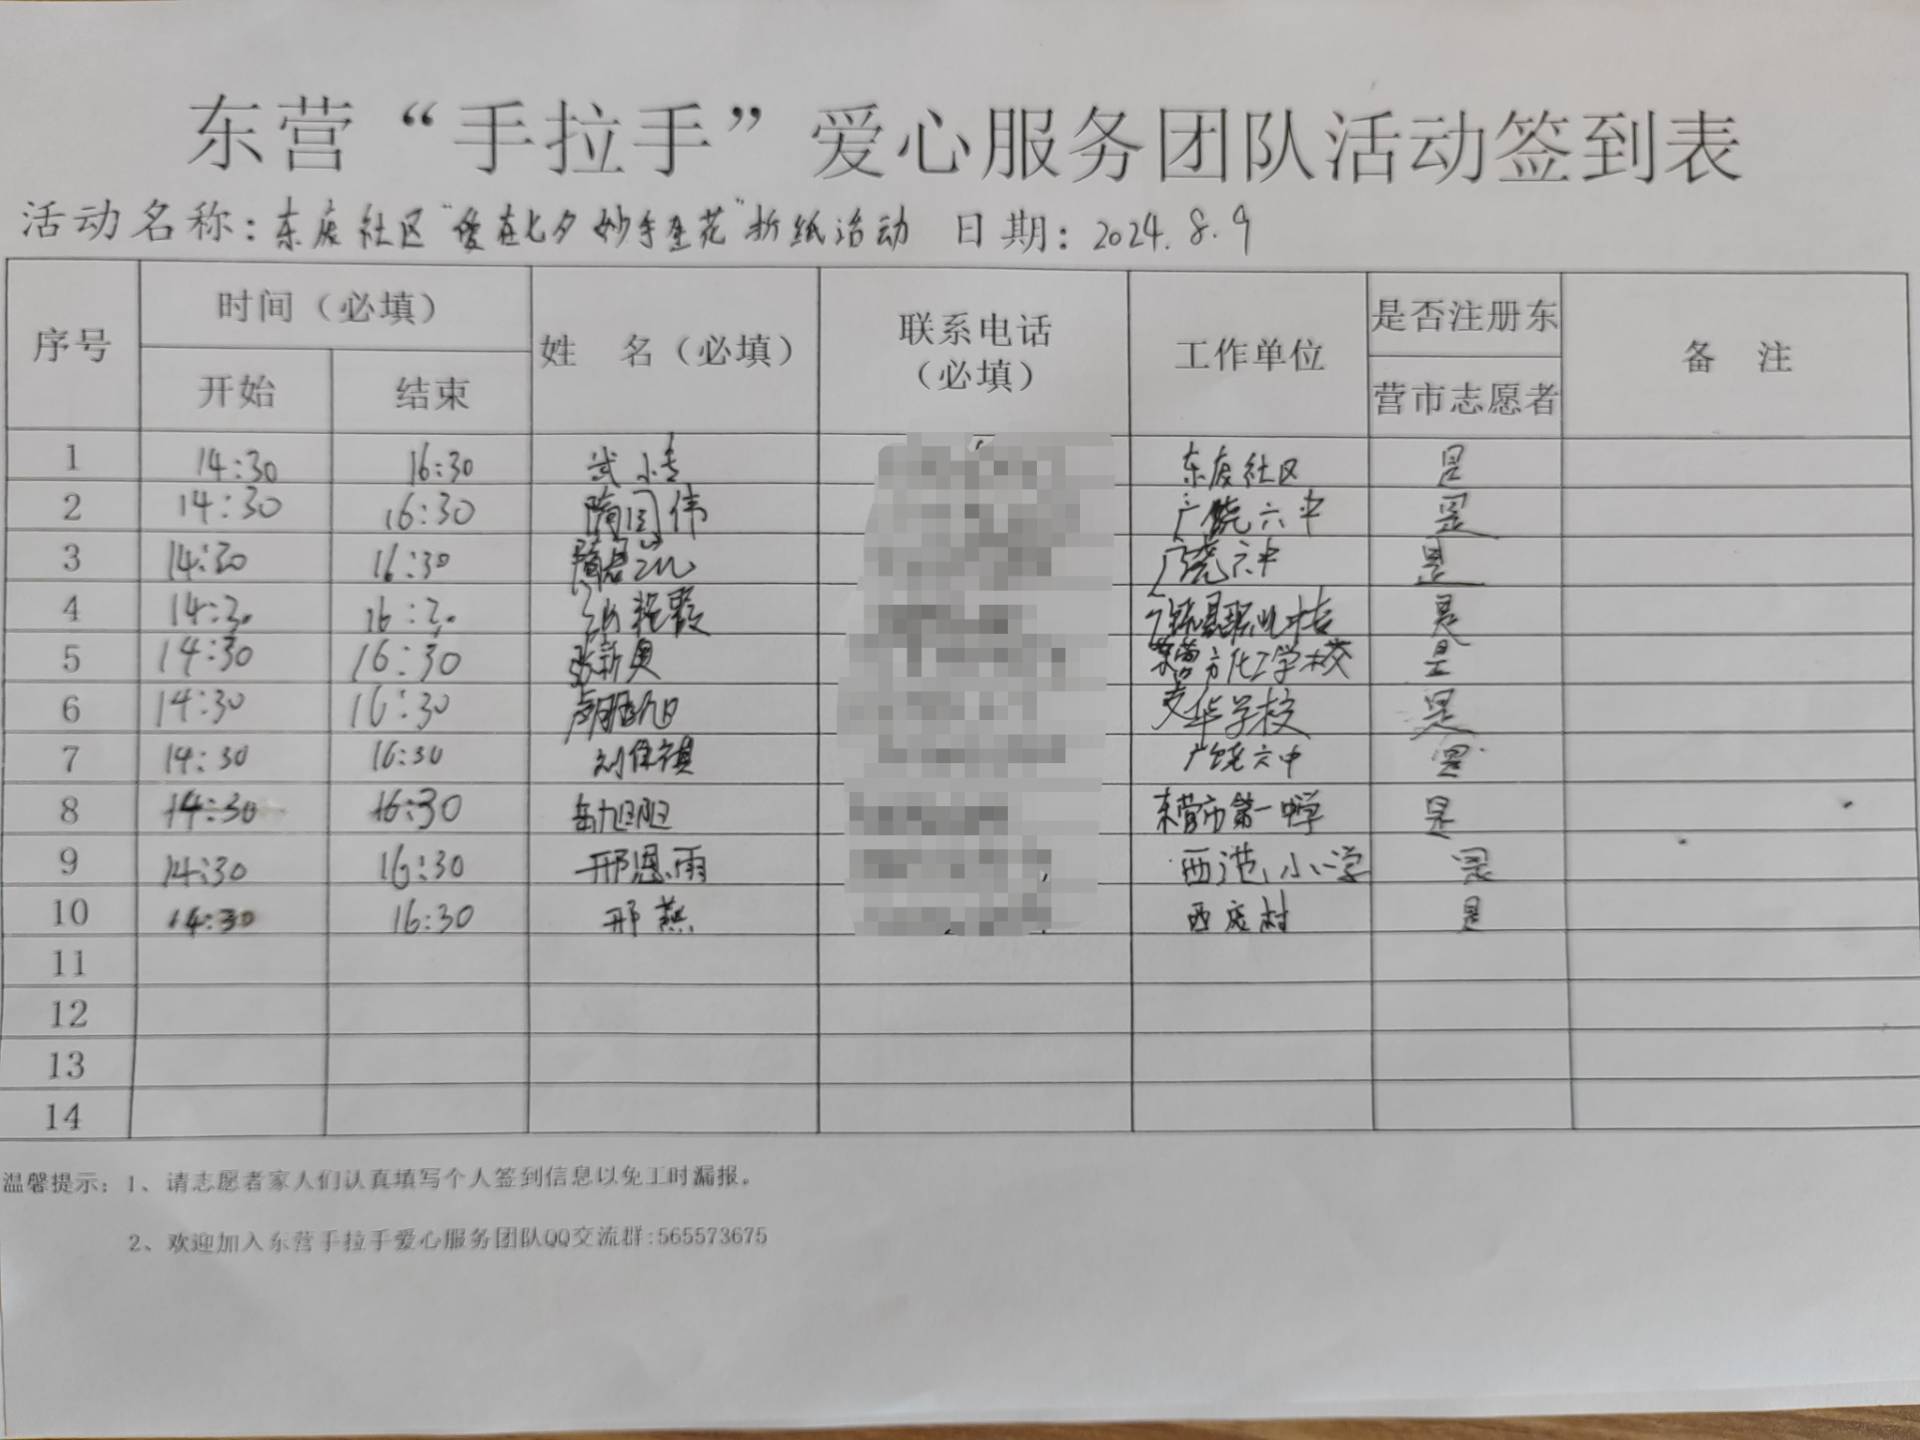 东营“手拉手”爱心服务团队活动签到表
活动名称：东庞社区“爱在七夕 妙手生花”折纸活动 日期：2024.8.9
序号 时间（必填） 姓 名（必填） 联系电话（必填） 工作单位 是否注册东营市志愿者 备 注
开始 结束
1 14:30 16:30 武小 东庞社区 是
2 14:30 16:30 隋闰伟 广饶六中 是
3 14:30 16:30 隋 广饶六中 是
4 14:30 16:30 是
5 14:30 16:30 张新奥 东营市化工学校 是
6 14:30 16:30 文华学校 是
7 14:30 16:30 刘保祺 广饶六中 是
8 14:30 16:30 东营市第一中学 是
9 14:30 16:30 邢恩雨 西范小学 是
10 14:30 16:30 邢燕 西庞村 是
11
12
13
14
温馨提示：1、请志愿者家人们认真填写个人签到信息以免工时漏报。
2、欢迎加入东营手拉手爱心服务团队QQ交流群:565573675